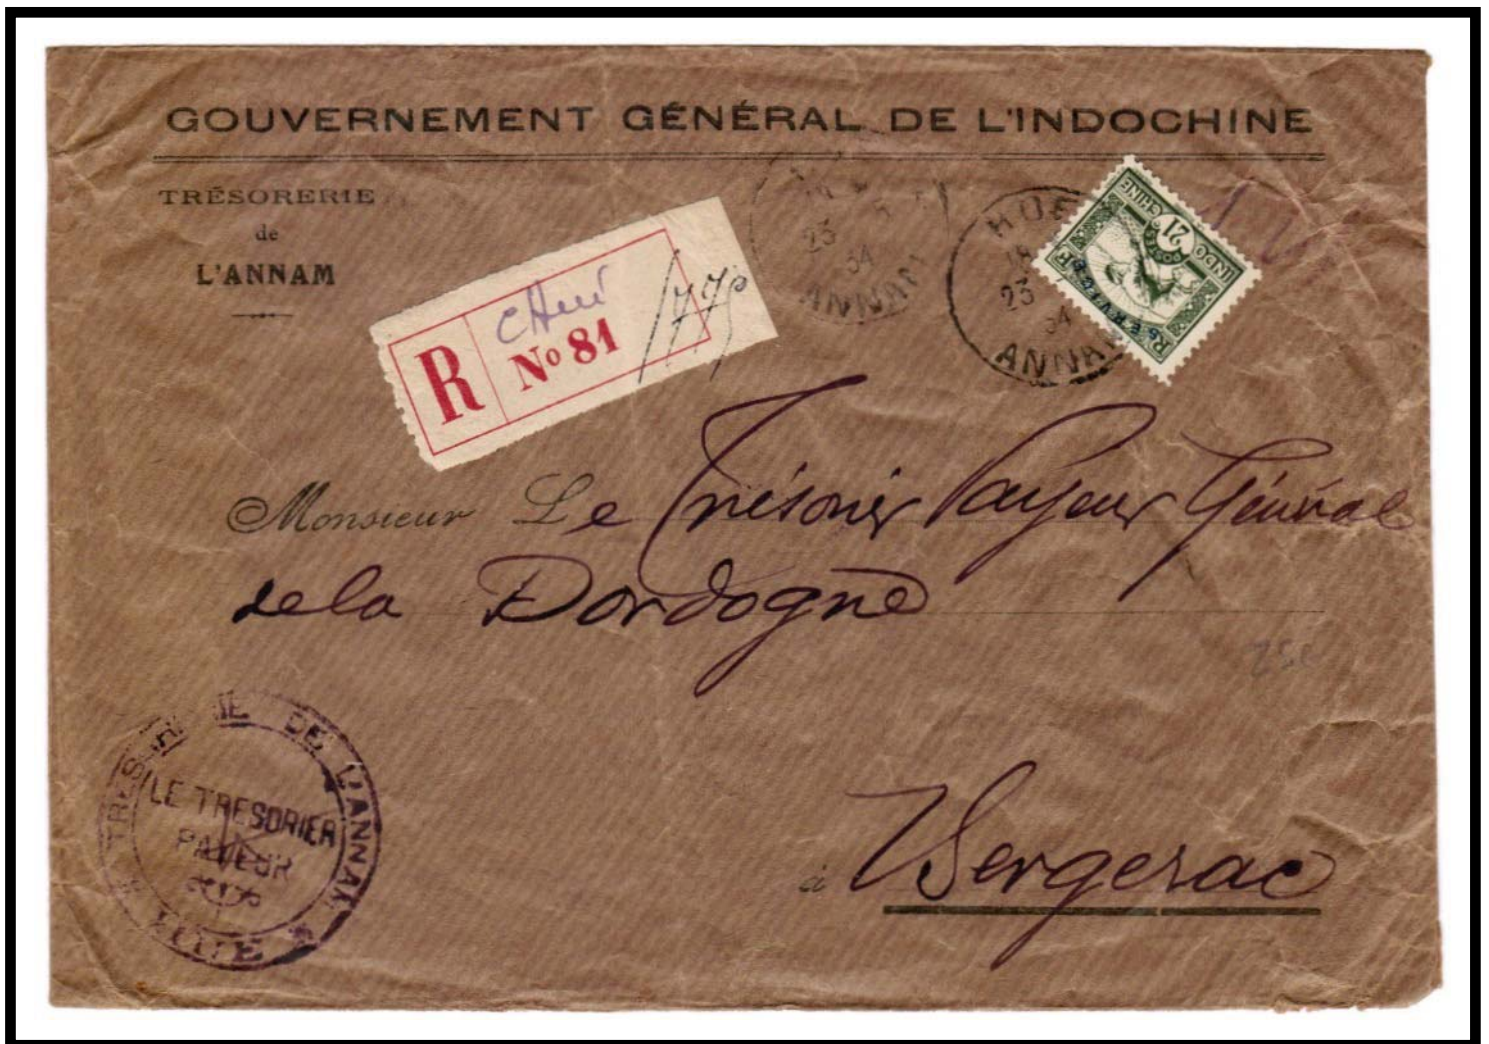 GOUVERNEMENT GÉNÉRAL DE L'INDOCHINE
TRÉSORERIE
de
L'ANNAM
R
No 81
23
34
ANNAM
HUE
23
34
ANNAM
INDO
CHINE
21
POSTES
SERVICE
RF
Monsieur Le Trésorier Payeur Général
de la Dordogne
25c
à Bergerac
TRESORERIE DE L'ANNAM
LE TRESORIER
PAYEUR
* HUE *